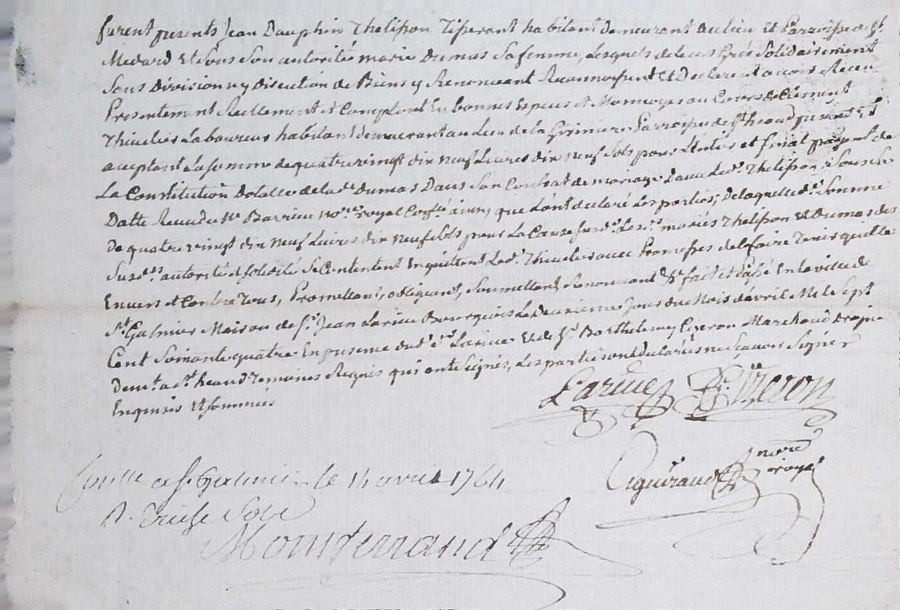 furent presents Jean Dauphin Thelison Tisserant habitant demeurant au lieu et Parroisse de St
Medard et sous son autorité marie Dumas sa femme, Lesquels de leurs grés solidairement
sans division ny discution de Biens y Renonceant Reconnoissent et Declarent avoir Receu
Presentement Reellement et Comptant En bonnes Especes et Monnoyes au Cours de Clement
Thiuelies Laboureur habitant demeurant au Lieu de la Parroisse de St heand present et
acceptant La somme de quatre vingt dix neuf Livres dix neuf sols pour Entier et final payement de
La Constitution Dotalle de la de Dumas Dans son Contrat de mariage Dauec led. Thelison sous sa
Datte Receu de Me Barrieu no.re royal que Lont declaré les parties; De laquelle de. somme
De quatre vingt dix neuf Liures dix neuf sols pour La Cause susd. Les. mariés Thelison et Dumas des
Susd.s autorité et solidité se Contentent En quittent Led. Thiuelies auec Promesses de le faire Tenir quitte
Enuers et Contre Tous, Promettant, obligeant, soumettant, Renonceant &c fait et Passé En la ville de
St Galmier Maison de Sr. Jean Larüe Bourgeois Le deuxieme Jour du Mois d'avril Mil sept
Cent soixante quatre En presence dud. Sr. Larüe et de Sr. Barthelemy Marchand
demt. a St heand Temoins Requis qui ont signés, Les parties ont declarés ne sçauoir signer
Enquises et sommées
Larüe
notre royal
Conttlé a St Galmier le 14 avril 1764
R. Treise Sols
Montferrand